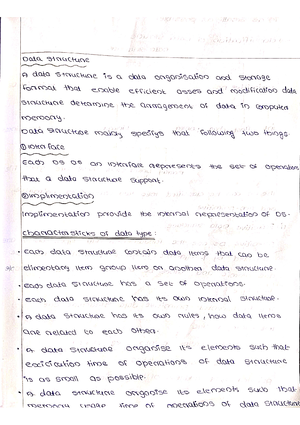 Data Structure
A data structure is a data organisation and storage
format that enable efficient asses and modification data
structure determine the arrangement of data in computer
memory.
Data structure mainly specifys that following two things
① Interface
Each DS DS an interface represents the set of operations
that a data structure support.
② Implimentation
Implimentation provide the internal representation of DS.
characteristicks of data type:
• Each data structure contain data items that can be
elimentary item group item or another data structure.
• Each data structure has a set of operations.
• each data structure has its own internal structure.
• A data structure has its own rules, how data items
are related to each other.
• A data structure organise its elements such that
execution time of operations of data structure
is as small as possible.
• A data structure organise its elements such that
memory usage time of operations of data structure